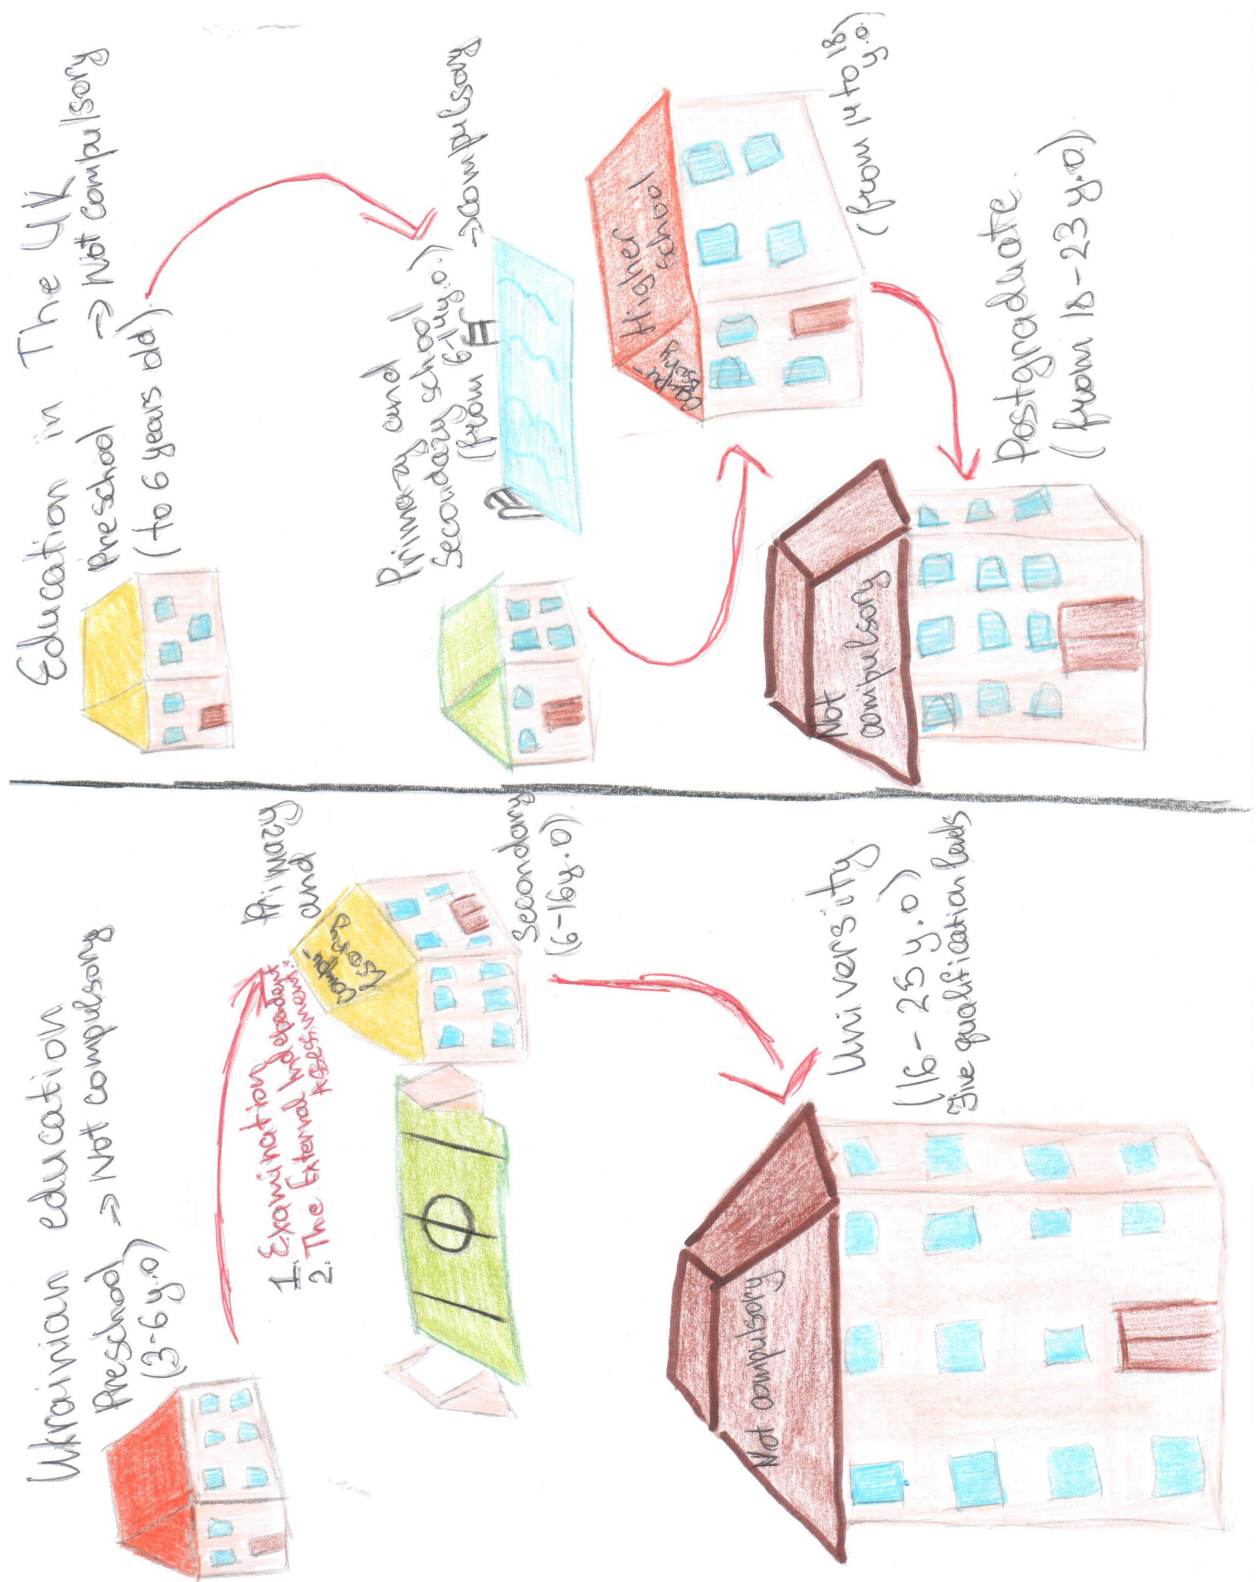 Ukrainian education
Preschool
(3-6 y.o)
→ Not compulsory
1. Examination
2. The External Independent
Assessment.
Primary
and
Compu-
lsory
Secondary
(6-16y.o)
Not compulsory
University
(16-25 y.o)
Five qualification levels
Education in The UK
Preschool
→ Not compulsory
(to 6 years old)
Primary and
Secondary school
(from 6-14y.o.)
→ compulsory
Higher
School
Compu-
lsory
(from 14 to 18
y.o.)
Not
compulsory
Postgraduate.
(from 18-23 y.o.)